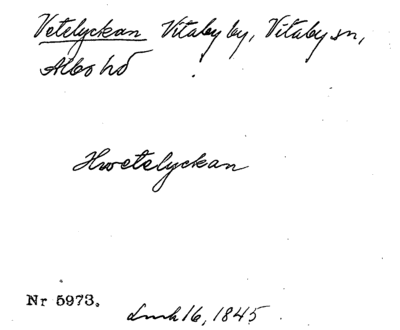 Vetelyckan Vitaby by, Vitaby sn,
Albo hd
Hwetelyckan
Nr 5973.
Lmh 16, 1845